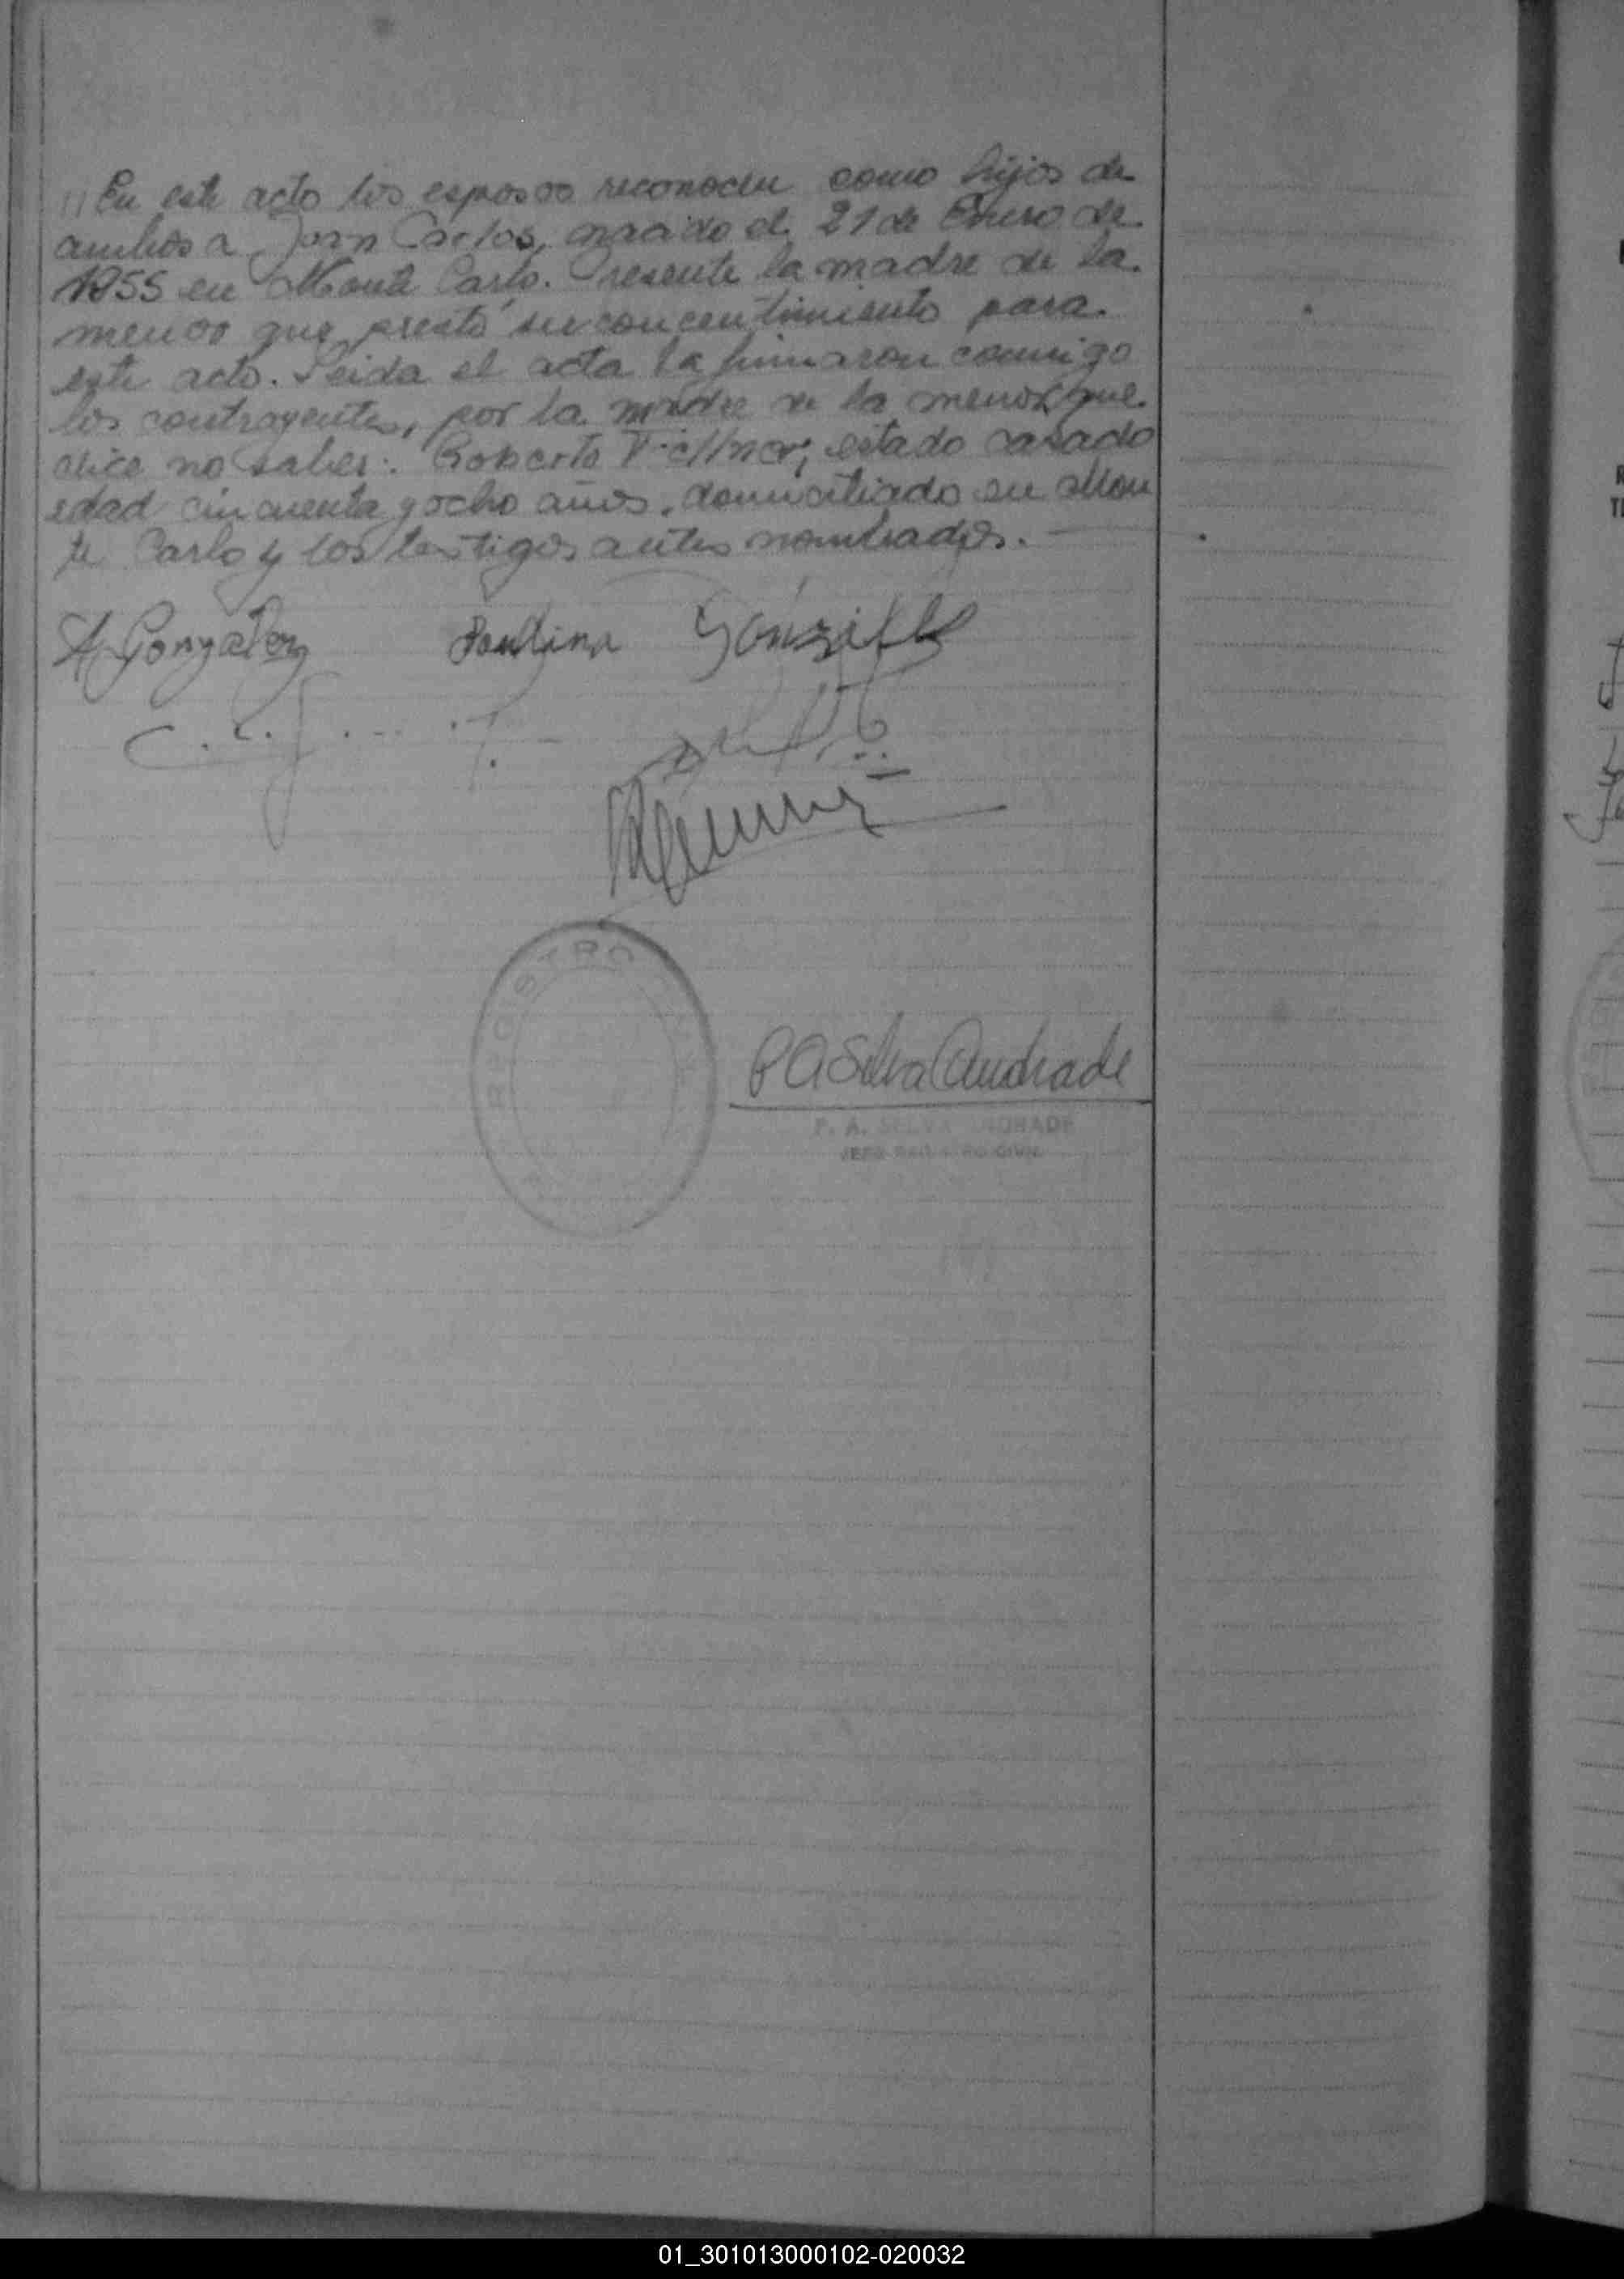 En este acto los esposos reconocen como hijos de
ambos a Juan Carlos, nacido el 21 de Enero de
1955 en Monte Carlo. Presente la madre de la
menor que prestó su concentimiento para
este acto. Leida el acta la firmaron conmigo
los contrayentes, por la madre de la menor que
dice no saber: Roberto estado casado
edad cincuenta y ocho años, domiciliado en Mon
te Carlo y los testigos antes nombrados.
A Gonzalez Paulina Gonzalez
REGISTRO
P A Selva Andrade
P. A. SELVA ANDRADE
JEFE REGISTRO CIVIL
01_301013000102-020032